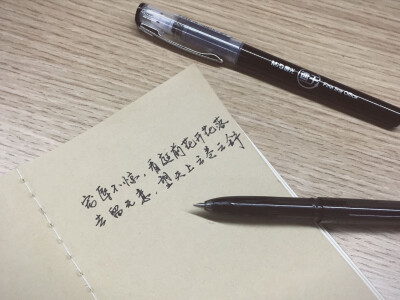 宠辱不惊，看庭前花开花落
去留无意，望天上云卷云舒
M&G晨光 速干